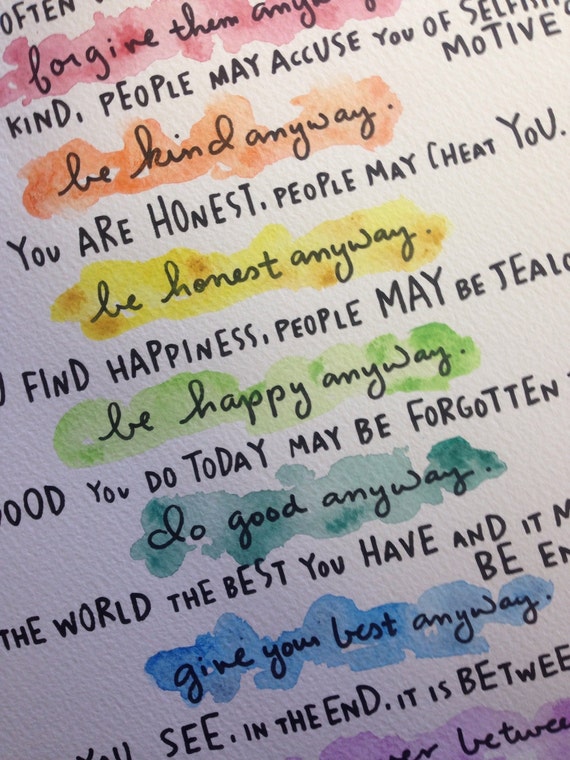 OFTEN
forgive them anyway
KIND, PEOPLE MAY ACCUSE YOU OF SELFISH
MOTIVE
be kind anyway.
YOU ARE HONEST, PEOPLE MAY CHEAT YOU.
be honest anyway.
FIND HAPPINESS, PEOPLE MAY BE JEALO
be happy anyway.
GOOD YOU DO TODAY MAY BE FORGOTTEN
do good anyway.
THE WORLD THE BEST YOU HAVE AND IT M
BE EN
give your best anyway.
YOU SEE, IN THE END, IT IS BETWEE
between